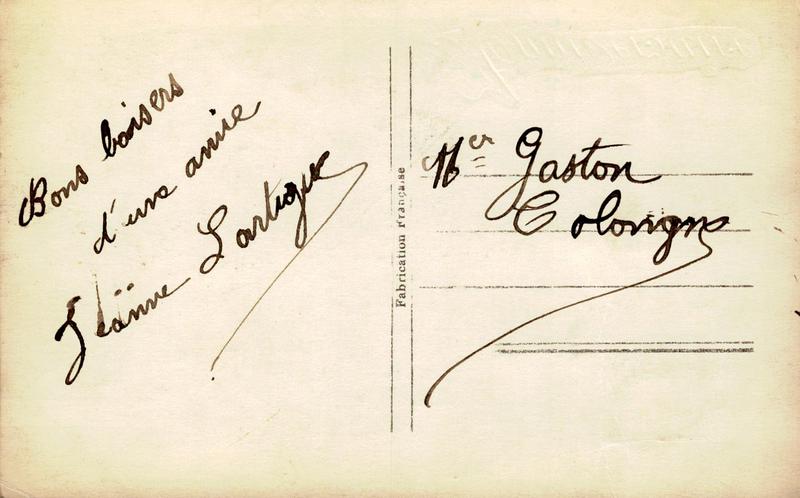 Bons baisers
d'une amie
Jeänne Lartigue
Fabrication Française
Mer Gaston
Colongne